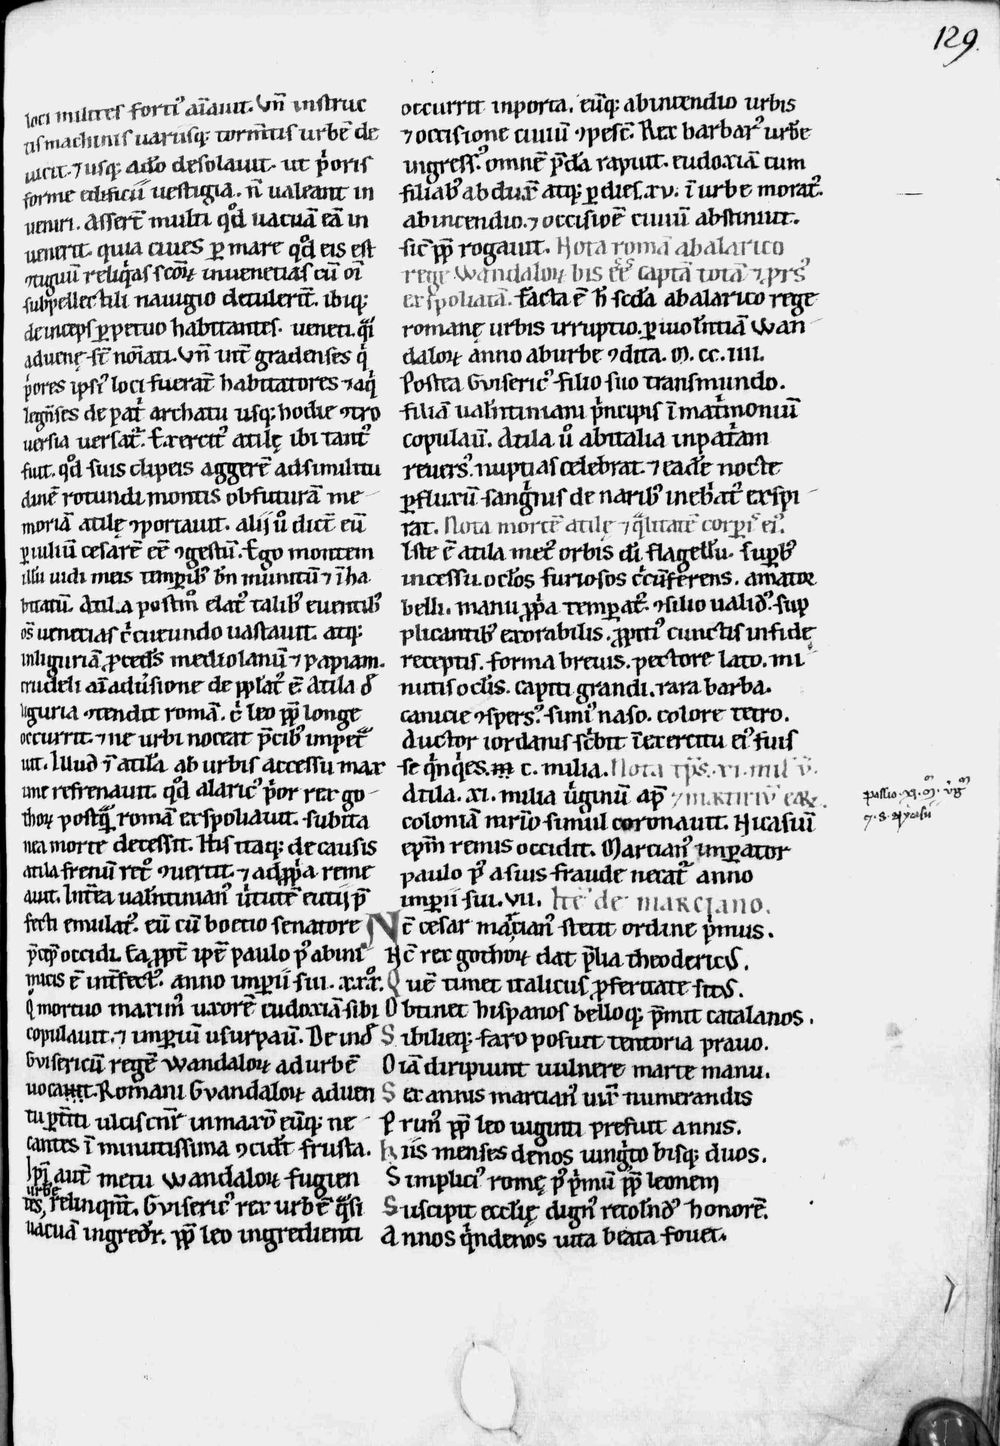 129.
loci milites fortiꝰ aīauit. Vn̄ instruc
tis machinis uariisq; tormētis urbē de
uicit. ⁊ usq; adeo desolauit. ut p̄oris
forme edificii uestigia. n̄ ualeant in
ueniri. Asserūt multi qd̄ uacuā eā in
uenerit. quia ciues ꝑ mare qd̄ eis est
ꝯtiguū reliq̄as scōꝝ inuenetias cū oī
subpellectili nauigio detulerūt. ibiq;
deinceps ꝑpetuo habitantes. ueneti. q̄i
aduenę st̄ noīati. Vn̄ int̄ gradenses q̄
p̄ores ipsiꝰ loci fuerāt habitatores ⁊ aq̄
legn̄ses de pat̄archatu usq; hodie ꝯtro
uersia uersat̄. Exercitꝰ atilę ibi tantꝰ
fuit. qd̄ suis clipeis aggerē adsimilitu
dinē rotundi montis obfuturā me
moriā atilę ꝯportauit. alij ū dicūt eū
ꝑ iuliū cesarē eē ꝯgestū. Ego montem
illū uidi meis temꝑibꝰ bn̄ munitū ⁊ īha
bitatū. Atila postm̄ elatꝰ talibꝰ euentibꝰ
os̄ uenetias c̄cueundo uastauit. atq;
inliguriā ꝓcedēs mediolanū ⁊ papiam.
crudeli aīaduersione depplat̄ ē Atila d̄
liguria ꝯtendit romā. c̄ leo pp̄ longe
occurrit. ⁊ ne urbi noceat p̄cibꝰ impet̄
uit. Illud ī atila ab urbis accessu max
ime refrenauit. qd̄ alaricꝰ p̄or rex go
thoꝝ postq̄ romā exspoliauit. subita
nea morte decessit. His itaq; de causis
atila frenū ret̄ ꝯuertit. ⁊ adꝓp̄a reme
auit. Int̄ea ualēntinianꝰ ūtutē eutij p̄
fecti emulatꝰ. eū cū boetio senatore
p̄cep̄ occidi. Ea ꝓpt̄ ipē paulo pꝰ abini
micis ē int̄fectꝰ. anno imꝑii sui. xxxꝰ.
Q̄ mortuo maximꝰ uxorē eudoxiā sibi
copulauit. ⁊ imꝑiū usurpauit. De ind̄
Gvisericū regē Wandaloꝝ adurbē
uocauit. Romani Gvandaloꝝ aduen
tu ꝑt̄iti ulciscūt̄ inmaxō eūq; ne
cantes ī minutissima ꝯcidūt frusta.
Ipī aut̄ metu Wandaloꝝ fugien
urbē
tes, relinqūt. Gvisericꝰ rex urbē q̄si
uacuā ingredit̄. pp̄ leo ingredienti
occurrit inporta. eūq; abincendio urbis
⁊ occisione ciuiū ꝯpescit. Rex barbarꝰ urbē
ingressꝰ omnē p̄dā rapuit. eudoxiā cum
filiabꝰ abduxit̄ atq; ꝑ dies. xv. ī urbe moratꝰ.
abincendio. ⁊ occisiōe ciuiū abstinuit.
sic̄ pp̄ rogauit. Nota romā abalarico
rege Wandaloꝝ bis eē captā totā ⁊ pꝰ
exspoliatā. Facta ē h̄ scd̄a abalarico rege
romanę urbis irruptio. ꝑ iuolentiā Wan
daloꝝ anno aburbe ꝯdita. M. cc. IIII.
Postea Gvisericꝰ filio suo transmundo.
filiā ualentiniani p̄ncipis ī mat̄moniū
copulauit. Atila ū abitalia inpat̄am
reuersꝰ. nuptias celebrat. ⁊ eadē nocte
ꝑfluxū sanḡnis de naribꝰ inebatꝰ exspi
rat. Nota mortē atilę ⁊ q̄litatē corꝑis eiꝰ.
Iste ē atila metꝰ orbis dī flagellū. suꝑbꝰ
incessu. oclos furiosos c̄cūferens. amator
belli. manu ꝓp̄a temꝑatꝰ. ꝯsilio ualidꝰ. sup
plicantibꝰ exorabilis. ꝓpitiꝰ cunctis infidę
receptis. forma breuis. pectore lato. mi
nutis oclis. capiti grandi. rara barba.
canicie ꝯspersꝰ. simꝰ naso. colore tetro.
Auctor iordanis sc̄bit ī exercitu eiꝰ fuis
se q̄nq̄es. c. milia. Nota tp̄s. xi. mil v̄.
Atila. xi. milia ūginū ap̄ ⁊ martiriū eaꝝ.
coloniam mr̄io simul coronauit. Nicasiū
epm̄ remis occidit. Marcianꝰ imꝑator
paulo pꝰ a suis fraude necatꝰ anno
imꝑii sui. VII. Itē de marciano.
Nē cesar marcianꝰ stetit ordine p̄mus.
Hc̄ rex gothoꝝ dat p̄lia theodericus.
Quē timet italicus ꝓferitate situs.
Obtinet hispanos belloq; p̄mit catalanos.
Sibilieq; faro posuit tentoria prauo.
Oīā diripiunt uulnere marte manu.
Sex annis marcianꝰ uix̄ numerandis
Prunꝰ pp̄ leo uiginti prefuit annis.
Hiis menses denos uingito bisq; duos.
Simpliciꝰ romę pꝰ p̄mū pp̄ leonem
Suscipit ecclię dignꝰ recolendꝰ honorē.
Annos q̄ndenos uita beata fouet.
passio. xi. m̄. v̄gm̄
⁊. s. nycasii